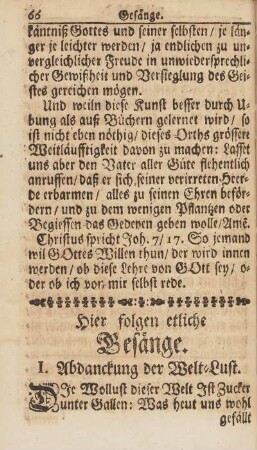 66 Gesänge.
käntniß Gottes und seiner selbsten/ je län-
ger je leichter werden/ ja endlichen zu un-
vergleichlicher Freude in unwiedersprechli-
cher Gewißheit und Versieglung des Gei-
stes gereichen mögen.
Und weiln diese Kunst besser durch U-
bung als auß Büchern gelernet wird/ so
ist nicht eben nöthig/ dieses Orths grössere
Weitläufftigkeit davon zu machen: Lasset
uns aber den Vater aller Güte flehentlich
anruffen/ daß er sich seiner verirreten Heer-
de erbarmen/ alles zu seinen Ehren beför-
dern/ und zu dem wenigen Pflantzen oder
Begiessen das Gedeyen geben wolle/ Amē.
Christus spricht Joh. 7/ 17. So jemand
wil GOttes Willen thun/ der wird innen
werden/ ob diese Lehre von GOtt sey/ o-
der ob ich von mir selbst rede.
Hier folgen etliche
Gesänge.
I. Abdanckung der Welt-Lust.
DIe Wollust dieser Welt Ist Zucker
unter Gallen: Was heut uns wohl
gefällt